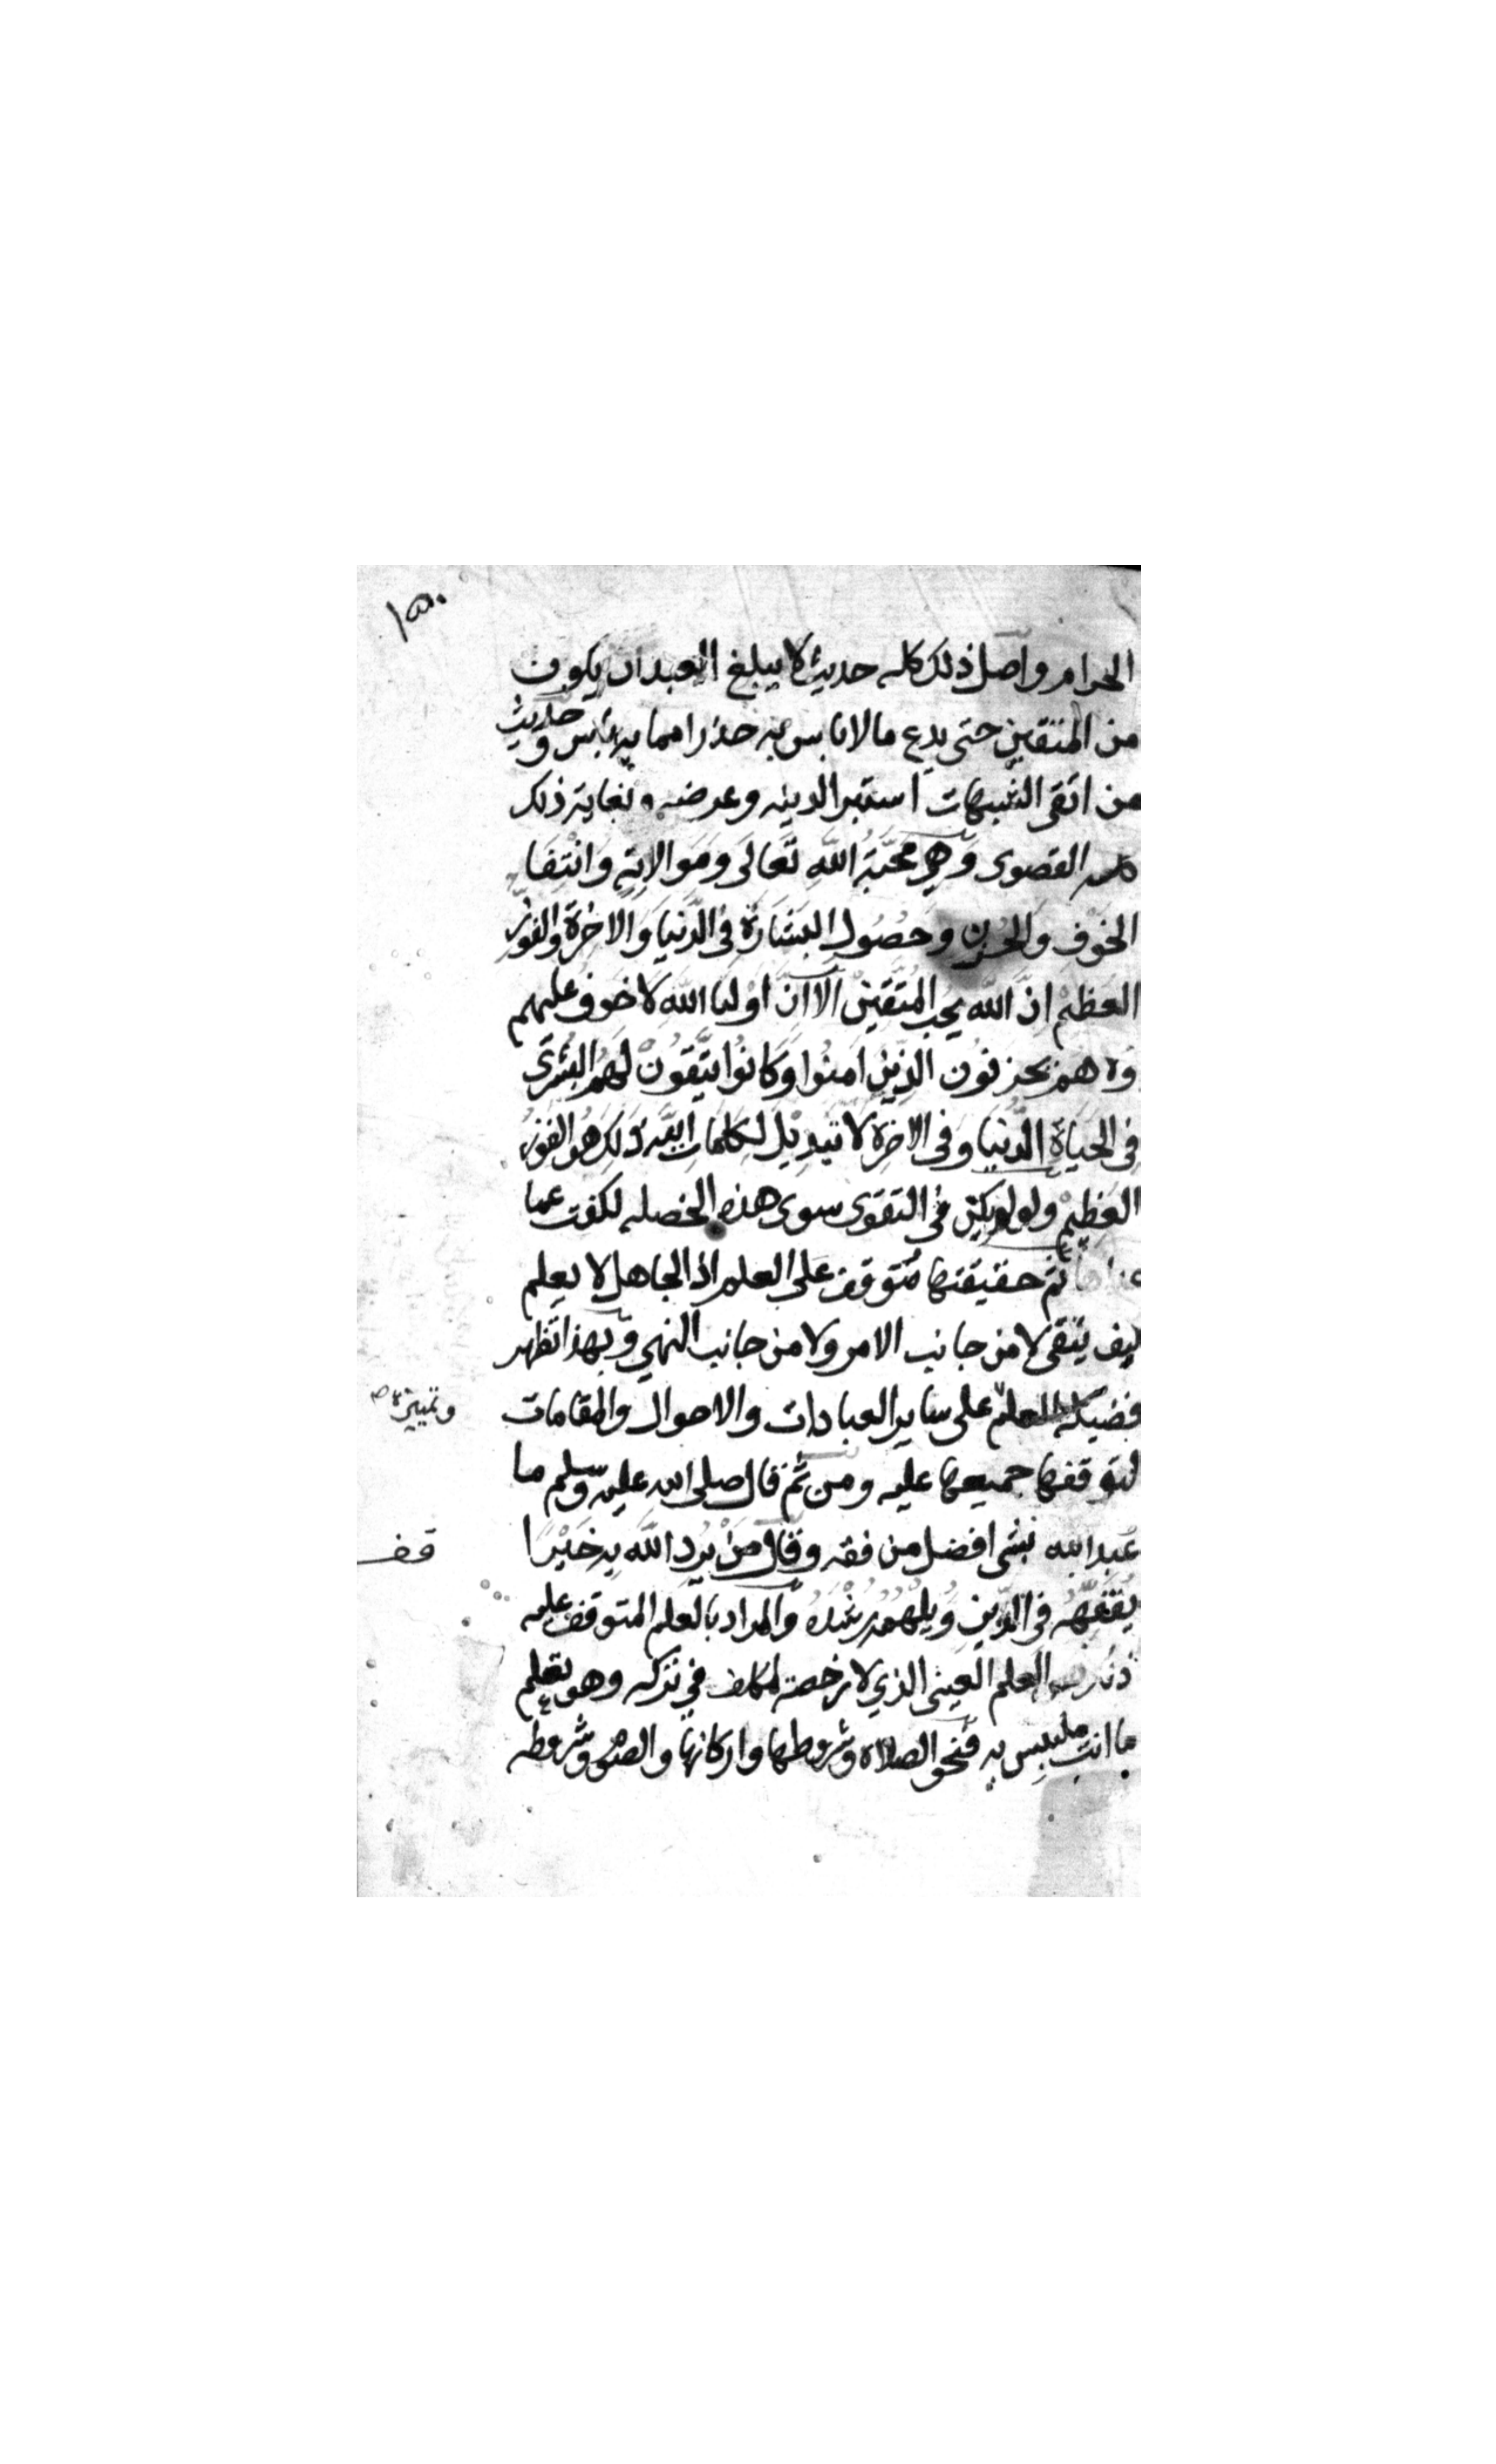 الحرام واصل ذلك كله حديث لا يبلغ العبد ان يكون
من المتقين حتى يدع ما لا باس به حذرا مما به باس وحديث
من اتقى الشبهات استبرا لدينه وعرضه وغاية ذلك
القصوى وهي محبة الله تعالى وموالاته وانتفا
الخوف والحزن وحصول البشارة في الدنيا والاخرة والفوز
العظيم ان الله يحب المتقين الا ان اوليا الله لا خوف عليهم
ولا هم يحزنون الذين امنوا وكانوا يتقون لهم البشرى
في الحياة الدنيا وفي الاخرة لا تبديل لكلمات الله ذلك هو الفوز
العظيم ولو لم يكن في التقوى سوى هذه الخصله لكفت عما
ثم حقيقتها متوقفة على العلم اذ الجاهل لا يعلم
كيف يتقى لا من جانب الامر ولا من جانب النهي وبهذا تظهر
فضيلة العلم على ساير العبادات والاحوال والمقامات
وتمييزه صح
لتوقفها جميعها عليه ومن ثم قال صلى الله عليه وسلم ما
عبد الله بشى افضل من فقه وقال من يرد الله به خيرا
قف
يفقهه في الدين ويلهمه رشده والمراد بالعلم المتوقف عليه
العلم العينى الذي لا رخصة لمكلف في تركه وهو تعلم
ما انت ملتبس به فنحو الصلاة وشروطها واركانها والصوم وشروطه